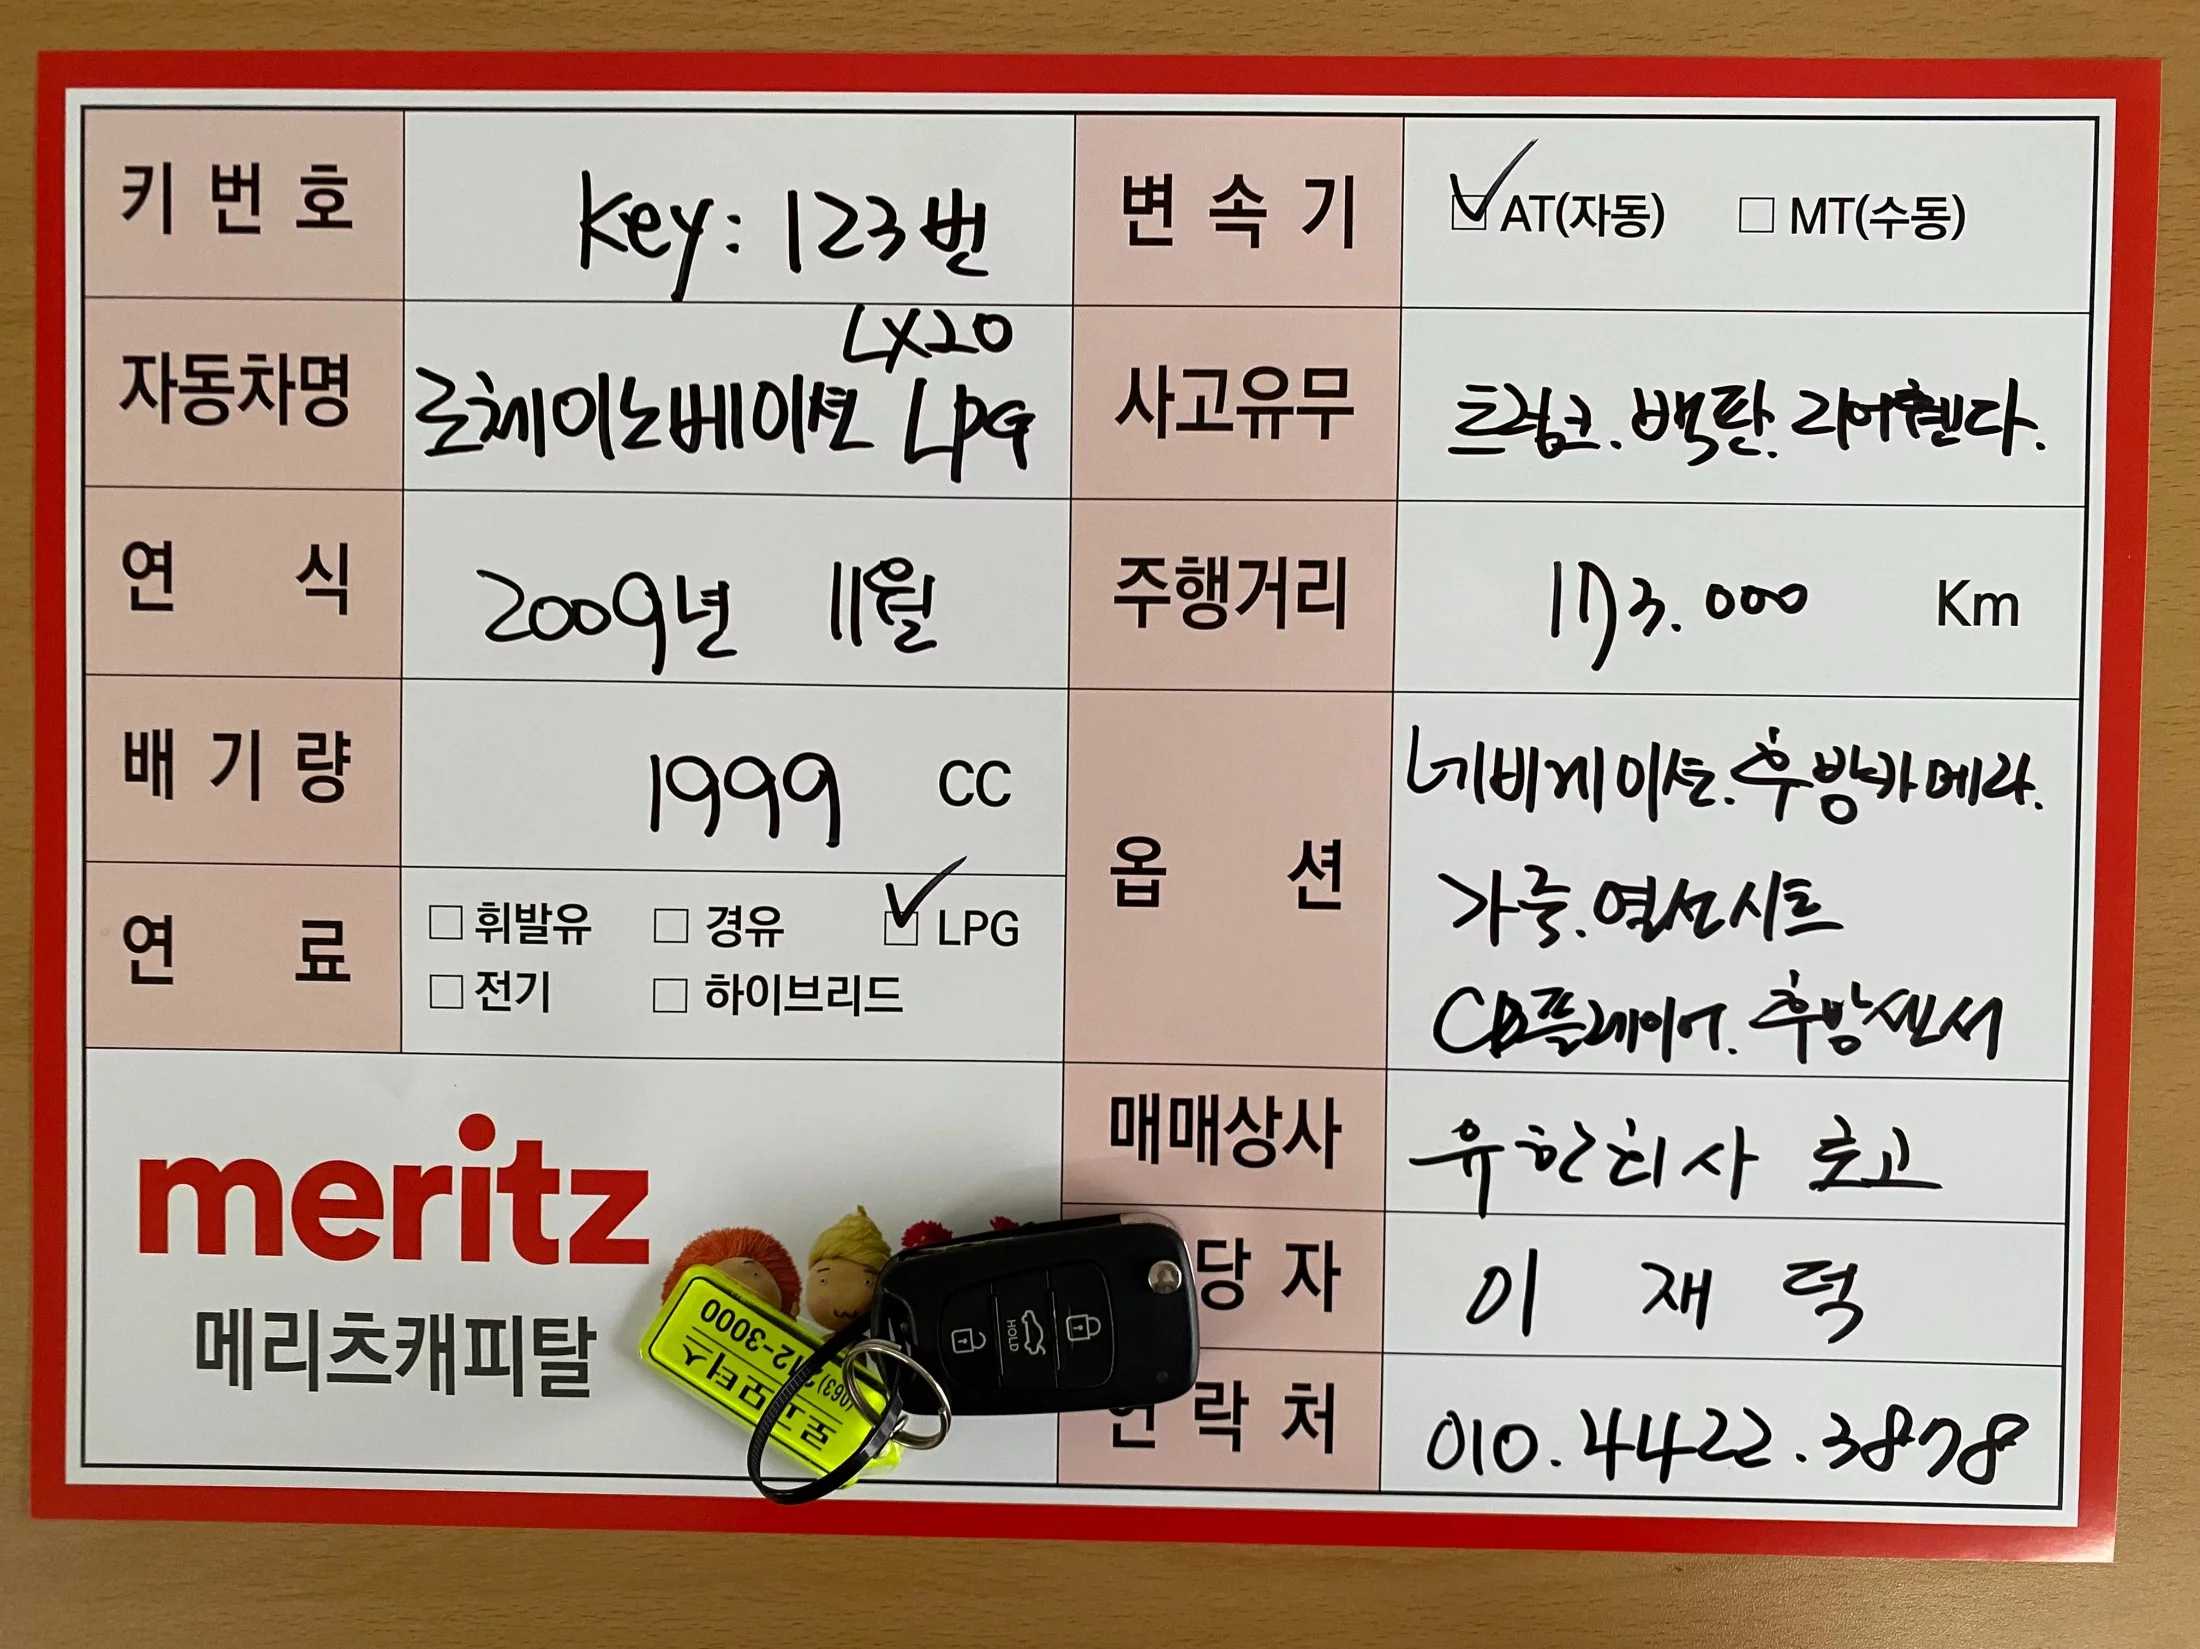 키 번 호
key: 123번
변 속 기
☑ AT(자동) ☐ MT(수동)
자동차명
LX20
로체이노베이션 LPG
사고유무
트렁크. 백판. 리어휀다.
연 식
2009년 11월
주행거리
173.000 Km
배 기 량
1999 CC
옵 션
네비게이션. 후방카메라.
가죽. 열선시트
CD플레이어. 후방센서
연 료
☐ 휘발유 ☐ 경유 ☑ LPG
☐ 전기 ☐ 하이브리드
매매상사
유한회사 로고
당 자
이 재 덕
락 처
010.4422.3878
meritz
메리츠캐피탈
로고모터스
(063) 12-3000
HOLD